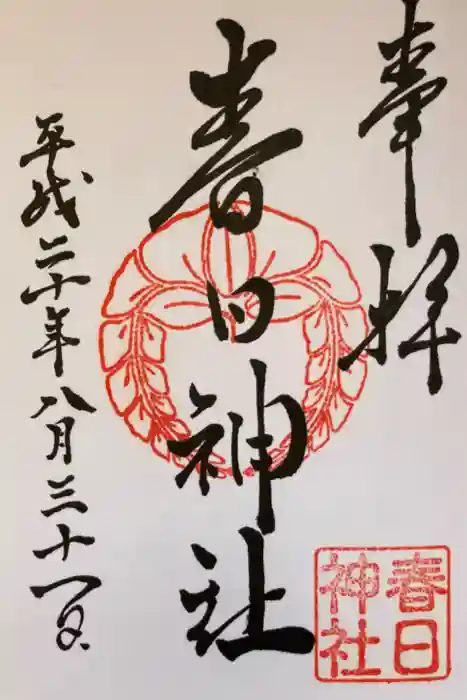 奉拝
春日神社
平成二十年八月三十一日
春日
神社